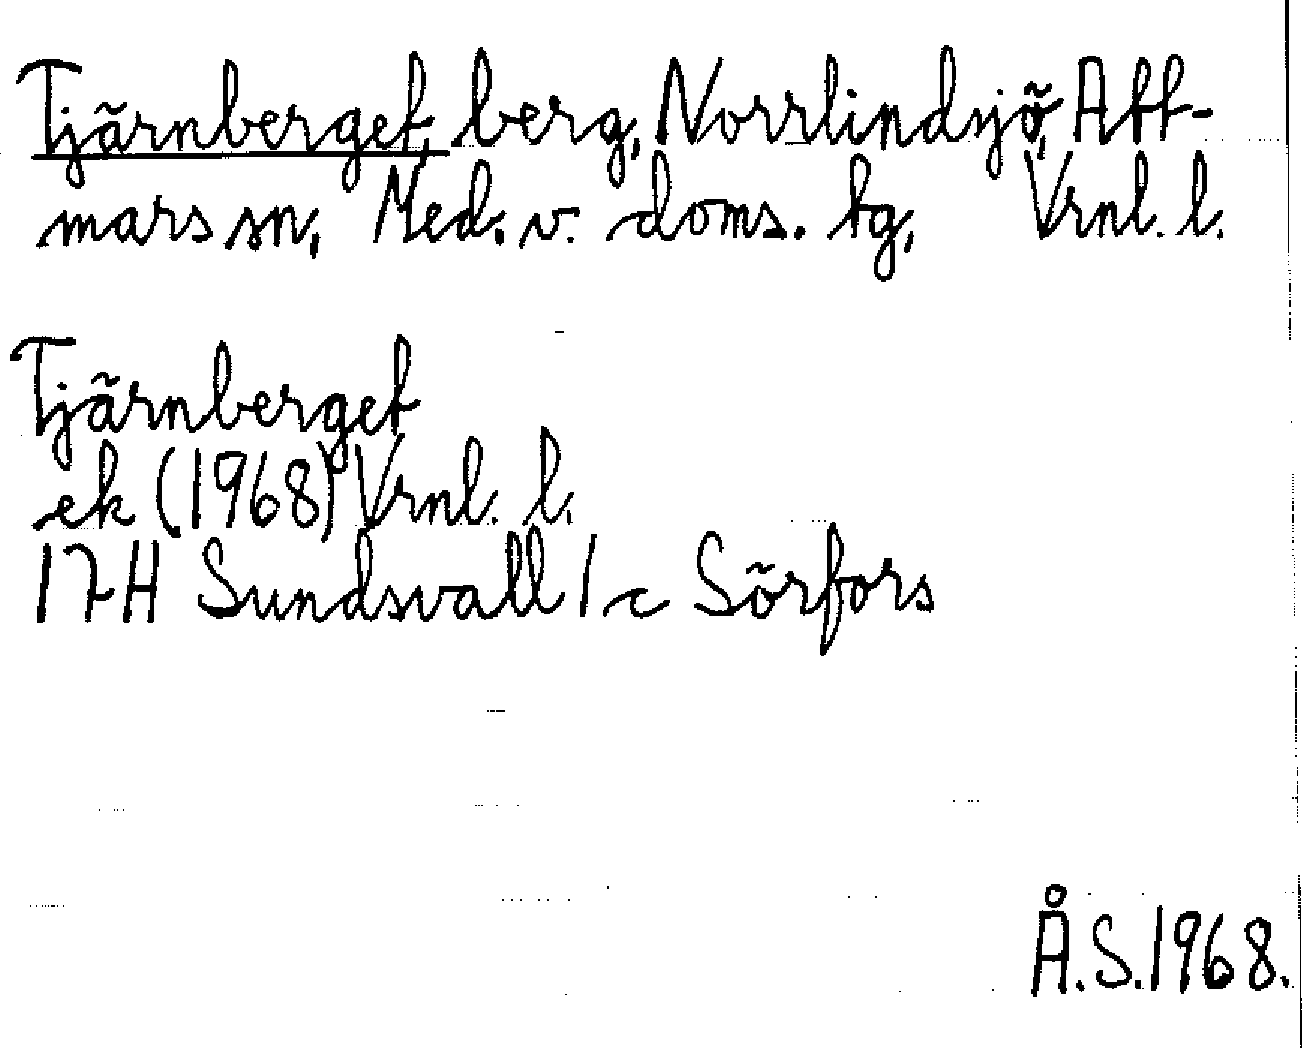 Tjärnberget, berg, Norrlindsjö, Att-
mars sn, Med. v. doms. tg, Vrnl. l.
Tjärnberget
ek (1968) Vrnl. l.
17H Sundsvall 1 c Sörfors
Å.S. 1968.